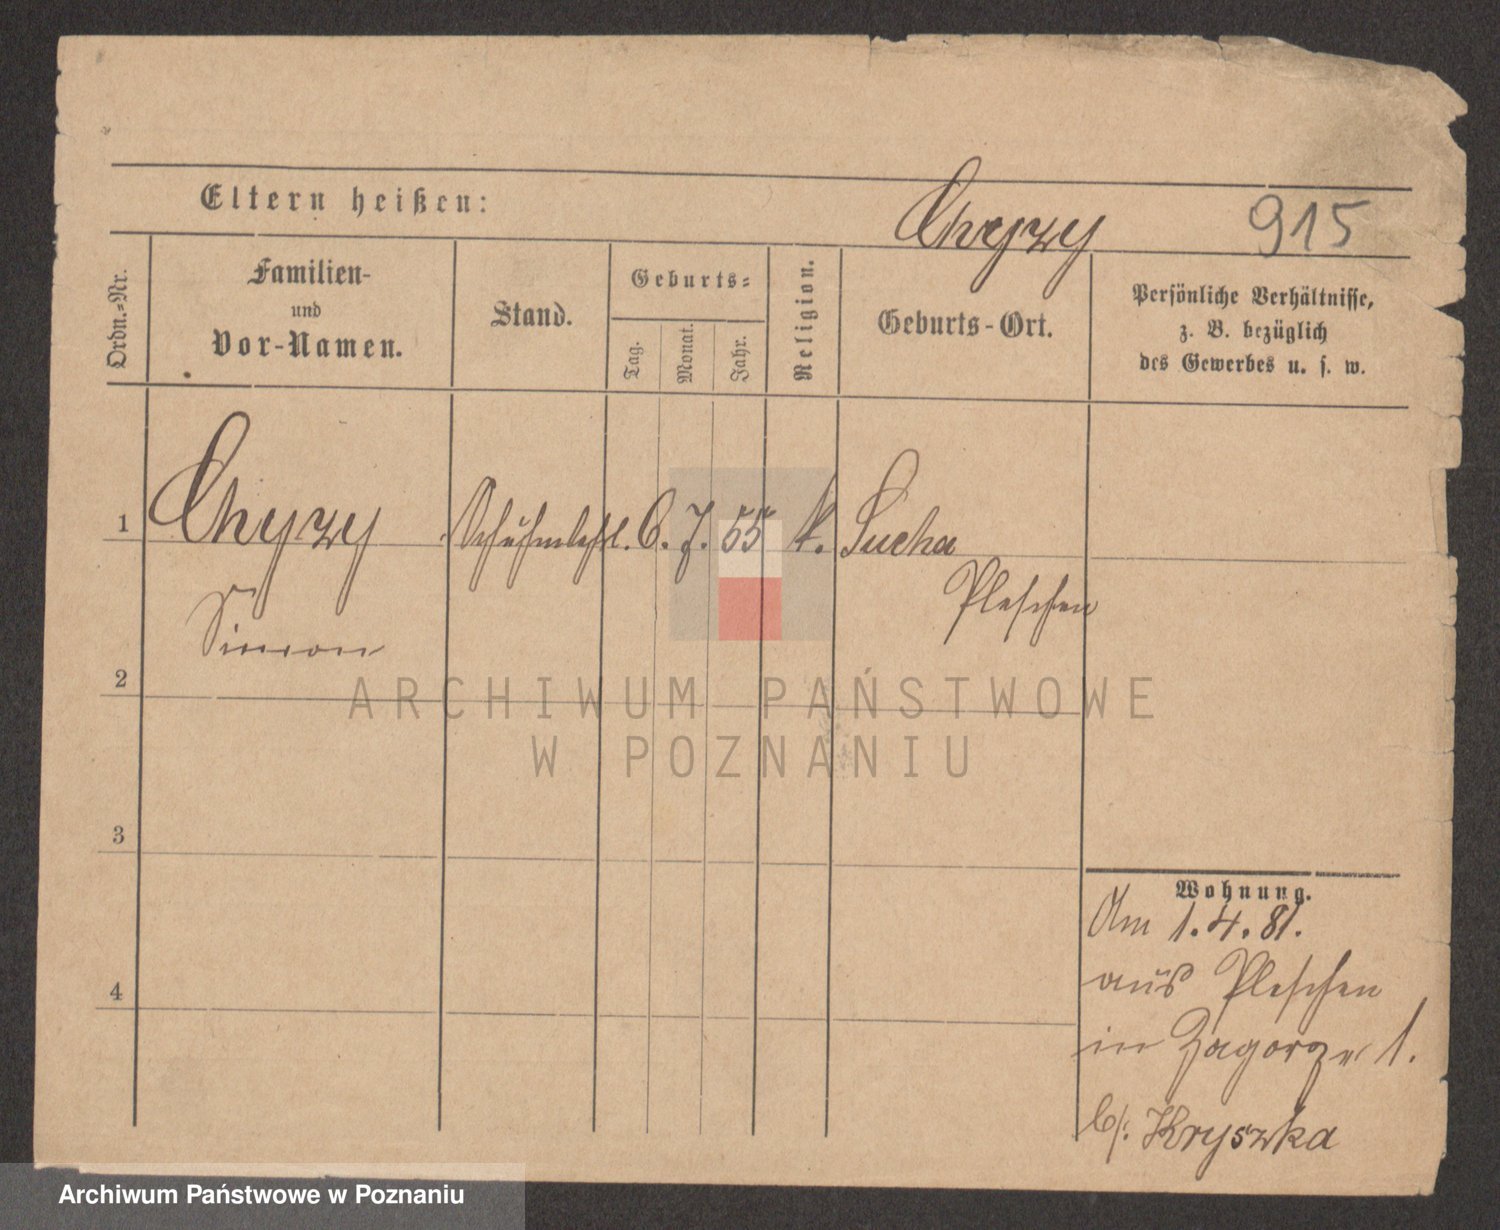 Eltern heißen:
Chyzy 915
Ordn.-Nr.
Familien-
und
Vor-Namen.
Stand.
Geburts-
Tag.
Monat.
Jahr.
Religion.
Geburts-Ort.
Persönliche Verhältnisse,
z. B. bezüglich
des Gewerbes u. s. w.
1 Chyzy 6. 7. 55 k. Sucha
Pleschen
Simon
2
3
4
Wohnung.
Am 1.4.81.
aus Pleschen
in Zagorze 1.
b/. Kryszka
ARCHIWUM PAŃSTWOWE
W POZNANIU
Archiwum Państwowe w Poznaniu